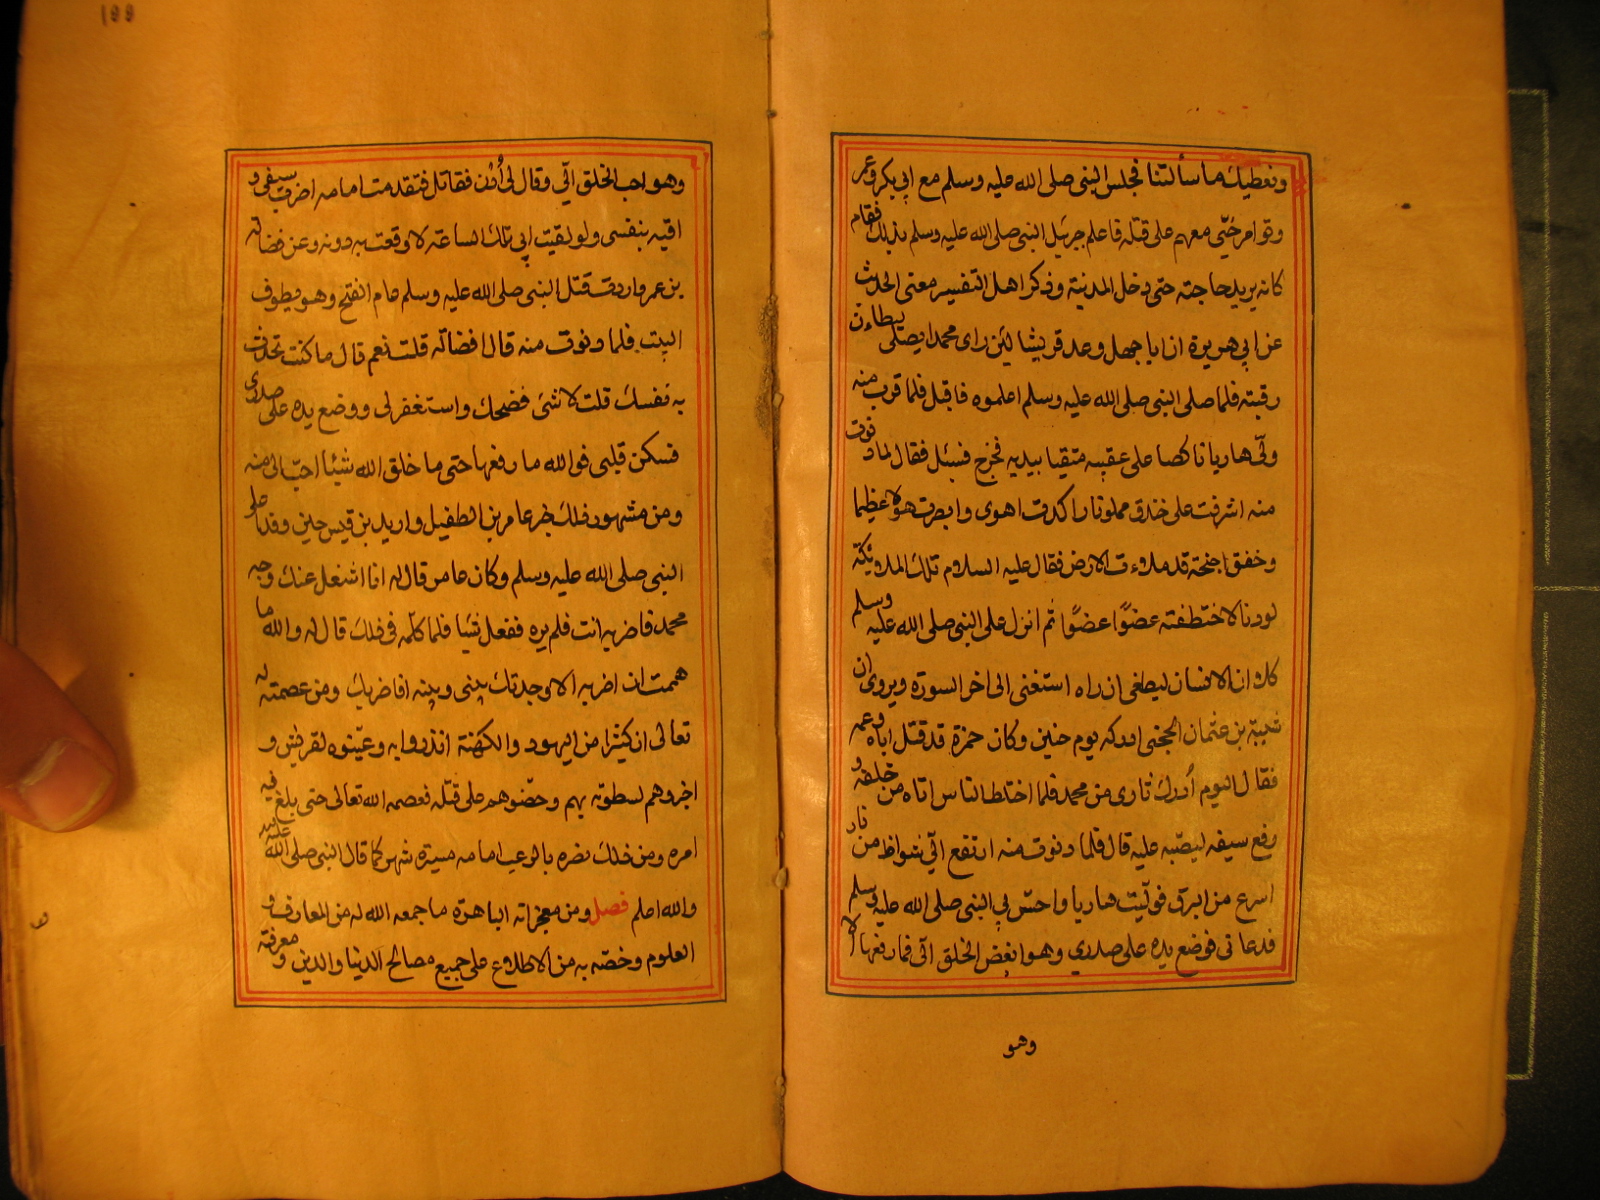 ونعطيك ما سألتنا فجلس النبي صلى الله عليه وسلم مع ابي بكر وعمر
وتوامر حُيّي معهم على قتله فاعلم جبرئيل النبي صلى الله عليه وسلم بذلك فقام
كانه يريد حاجته حتى دخل المدينة وذكر اهل التفسير معنى الحديث
عن ابي هريرة ان ابا جهل وعد قريشا لئن راى محمدا يصلى ليطاءن
رقبته فلما صلى النبي صلى الله عليه وسلم اعلموه فاقبل فلما قرب منه
ولّى هاربا ناكصا على عقبيه متقيا بيديه فخرج فسئل فقال لما دنوت
منه اشرفت على خندق مملو نارا كدت اهوى وابصرت هولا عظيما
وخفق اجنحة قد ملاءت الارض فقال عليه السلام تلك الملائكة
لو دنا لاختطفته عضوًا عضوًا ثم انزل على النبي صلى الله عليه وسلم
كلا ان الانسان ليطغى ان راه استغنى الى اخر السورة ويروى ان
شيبة بن عثمان الحجبي ادركه يوم حنين وكان حمزة قد قتل اباه وعمه
فقال اليوم أدرك ثارى من محمد فلما اختلط الناس اتاه من خلفه و
رفع سيفه ليصبّه عليه قال فلما دنوت منه ارتفع الّي شواظ من نار
اسرع من البرق فولّيت هاربا واحسّ بي النبي صلى الله عليه وسلم
فدعاني فوضع يده على صدري وهو ابغض الخلق الّى فما رفعها الا
وهو
١٩٩
وهو احب الخلق الّي وقال لي أُدْن فقاتل فتقدمت امامه اضرب بسيفى و
اقيه بنفسى ولو لقيت ابي تلك الساعة لاوقعت به دونه وعن فضالة
بن عمر واردت قتل النبي صلى الله عليه وسلم عام الفتح وهو يطوف
البيت فلما دنوت منه قال افضالة قلت نعم قال ما كنت تحدث
به نفسك قلت لا شئ فضحك واستغفر لى ووضع يده على صدرى
فسكن قلبى فوالله ما رفعها حتى ما خلق الله شيئا احبّ الى منه
ومن مشهور ذلك خبر عامر بن الطفيل واربد بن قيس حين وفدا على
النبي صلى الله عليه وسلم وكان عامر قال له انا اشغل عنك وجه
محمد فاضربه انت فلم يره فعل شيا فلما كلّمه في ذلك قال له والله ما
هممت ان اضربه الا وجدتك بينى وبينه افاضربك ومن عصمته له
تعالى ان كثيرا من اليهود والكهنة انذروا به وعيّنوه لقريش و
اخبروهم لسطوته بهم وحضّوهم على قتله فعصمه الله تعالى حتى بلغ فيه
امره ومن ذلك نصره بالرعب امامه مسيرة شهر كما قال النبي صلى الله عليه
والله اعلم فصل ومن معجزاته الباهرة ما جمعه الله له من المعارف و
العلوم وخصّه به من الاطلاع على جميع مصالح الدنيا والدين ومعرفته